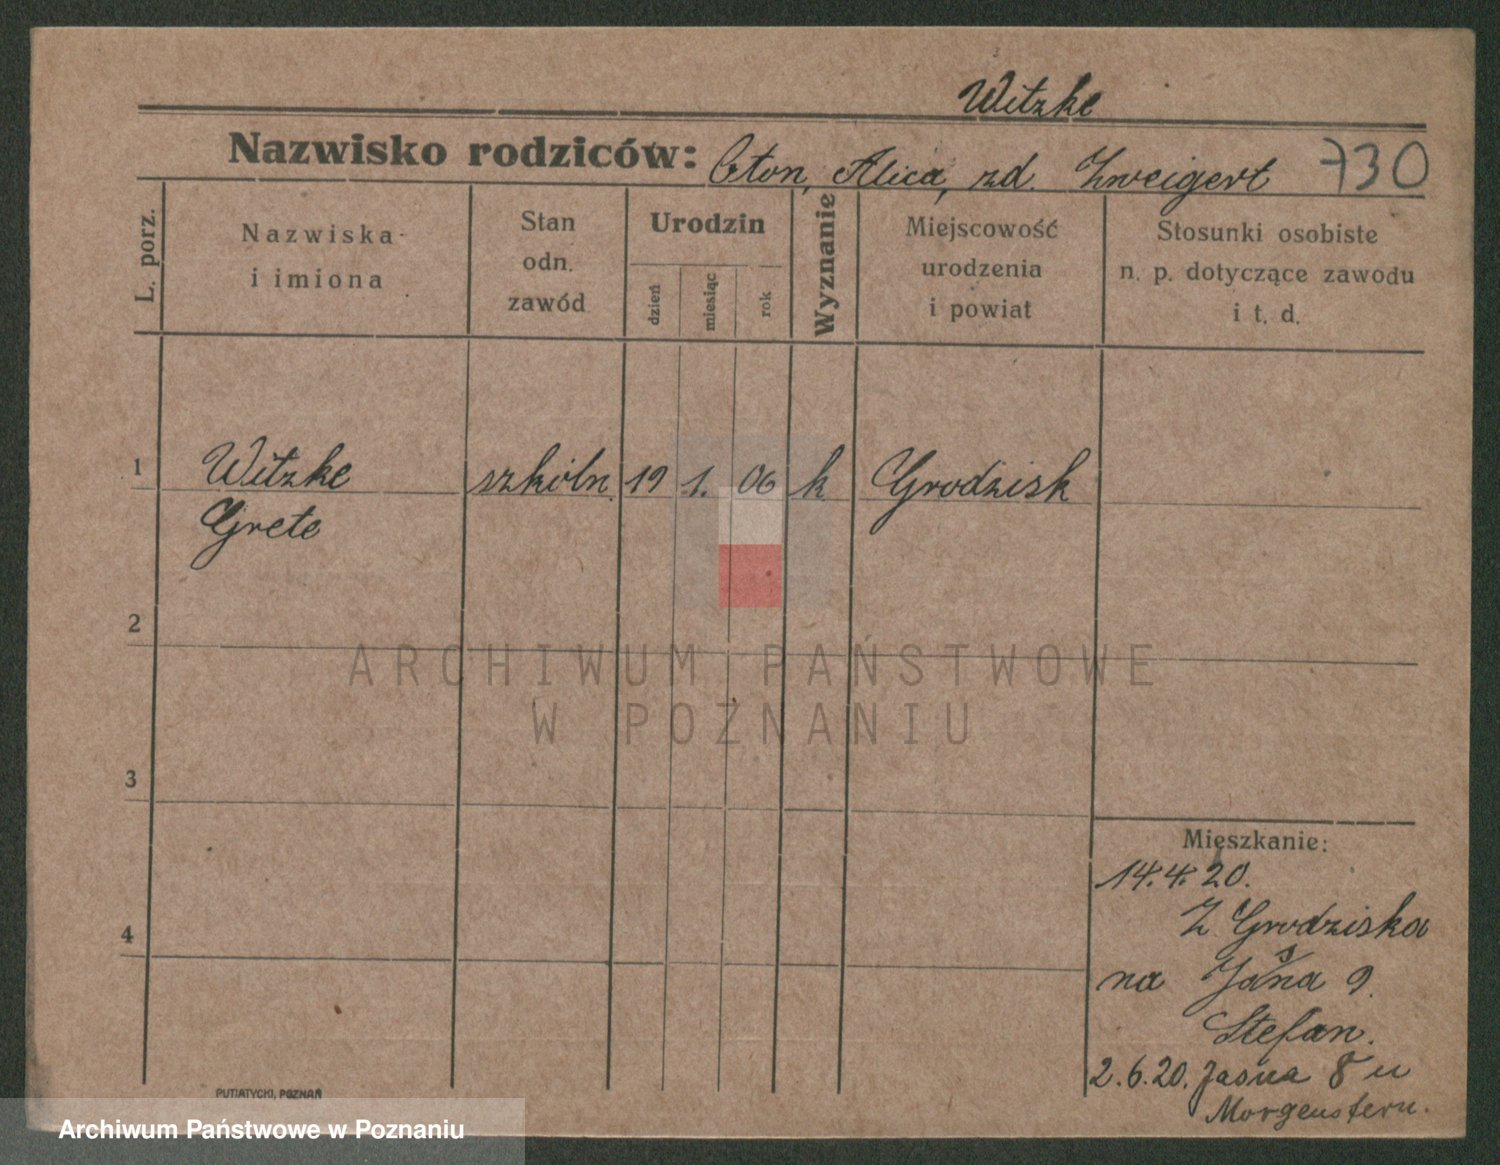 Witzke
Nazwisko rodziców: Oton, Alica, zd. Zweigert 730
L. porz.
Nazwiska
i imiona
Stan
odn.
zawód
Urodzin
dzień
miesiąc
rok
Wyznanie
Miejscowość
urodzenia
i powiat
Stosunki osobiste
n. p. dotyczące zawodu
i t. d.
1 Witzke szkóln. 19 1. 06 k Grodzisk
Grete
2
3
4
Mieszkanie:
14.4.20.
Z Grodziska
na Jasna 9.
Stefan.
2.6.20. Jasna 8 u
Morgenstern.
PUTIATYCKI, POZNAŃ
ARCHIWUM PAŃSTWOWE
W POZNANIU
Archiwum Państwowe w Poznaniu